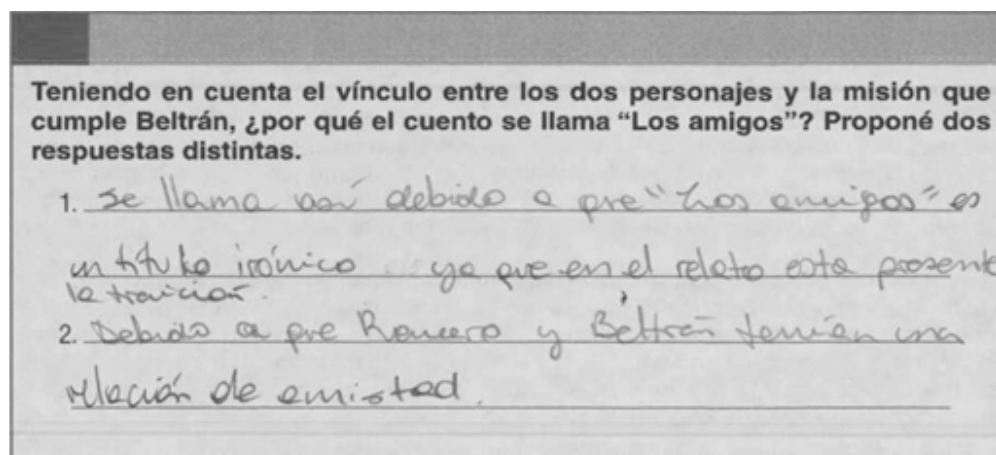 Teniendo en cuenta el vínculo entre los dos personajes y la misión que
cumple Beltrán, ¿por qué el cuento se llama “Los amigos”? Proponé dos
respuestas distintas.
1. Se llama así debido a que "Los amigos" es
un título irónico ya que en el relato esta presente
la traición.
2. Debido a que Romero y Beltrán tenían una
relación de amistad.